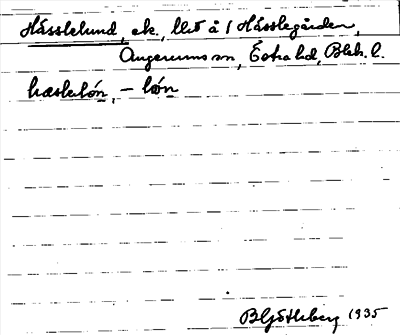 Hässlelund, ek., llt å 1 Hässlegården,
Augerums sn, Östra hd, Blek. l.
hæslelón, – lòn
B Götlberg 1935